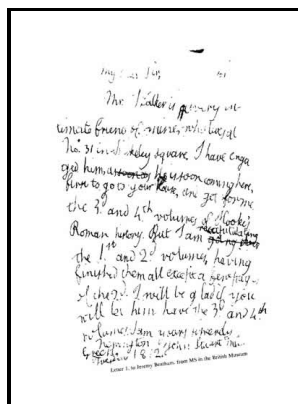 My dear Sir,
Mr. Walker is a very in-
timate friend of mine, who lives at
No. 31 in Berkeley square. I have enga-
ged him, as he is soon coming here,
first to go to your house, and get for me
the 3.d and 4th volumes of Hooke's
Roman history. But I am recapitulating
the 1.st and 2.d volumes, having
finished them all except a few pages
of the 2.d. I will be glad if you
will let him have the 3.d and 4th
volumes. I am yours sincerely
John Stuart Mill
1812
Letter 1, to Jeremy Bentham, from MS in the British Museum